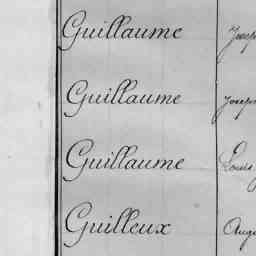 Guillaume Josep
Guillaume Joseph
Guillaume Louis
Guilleux Augu